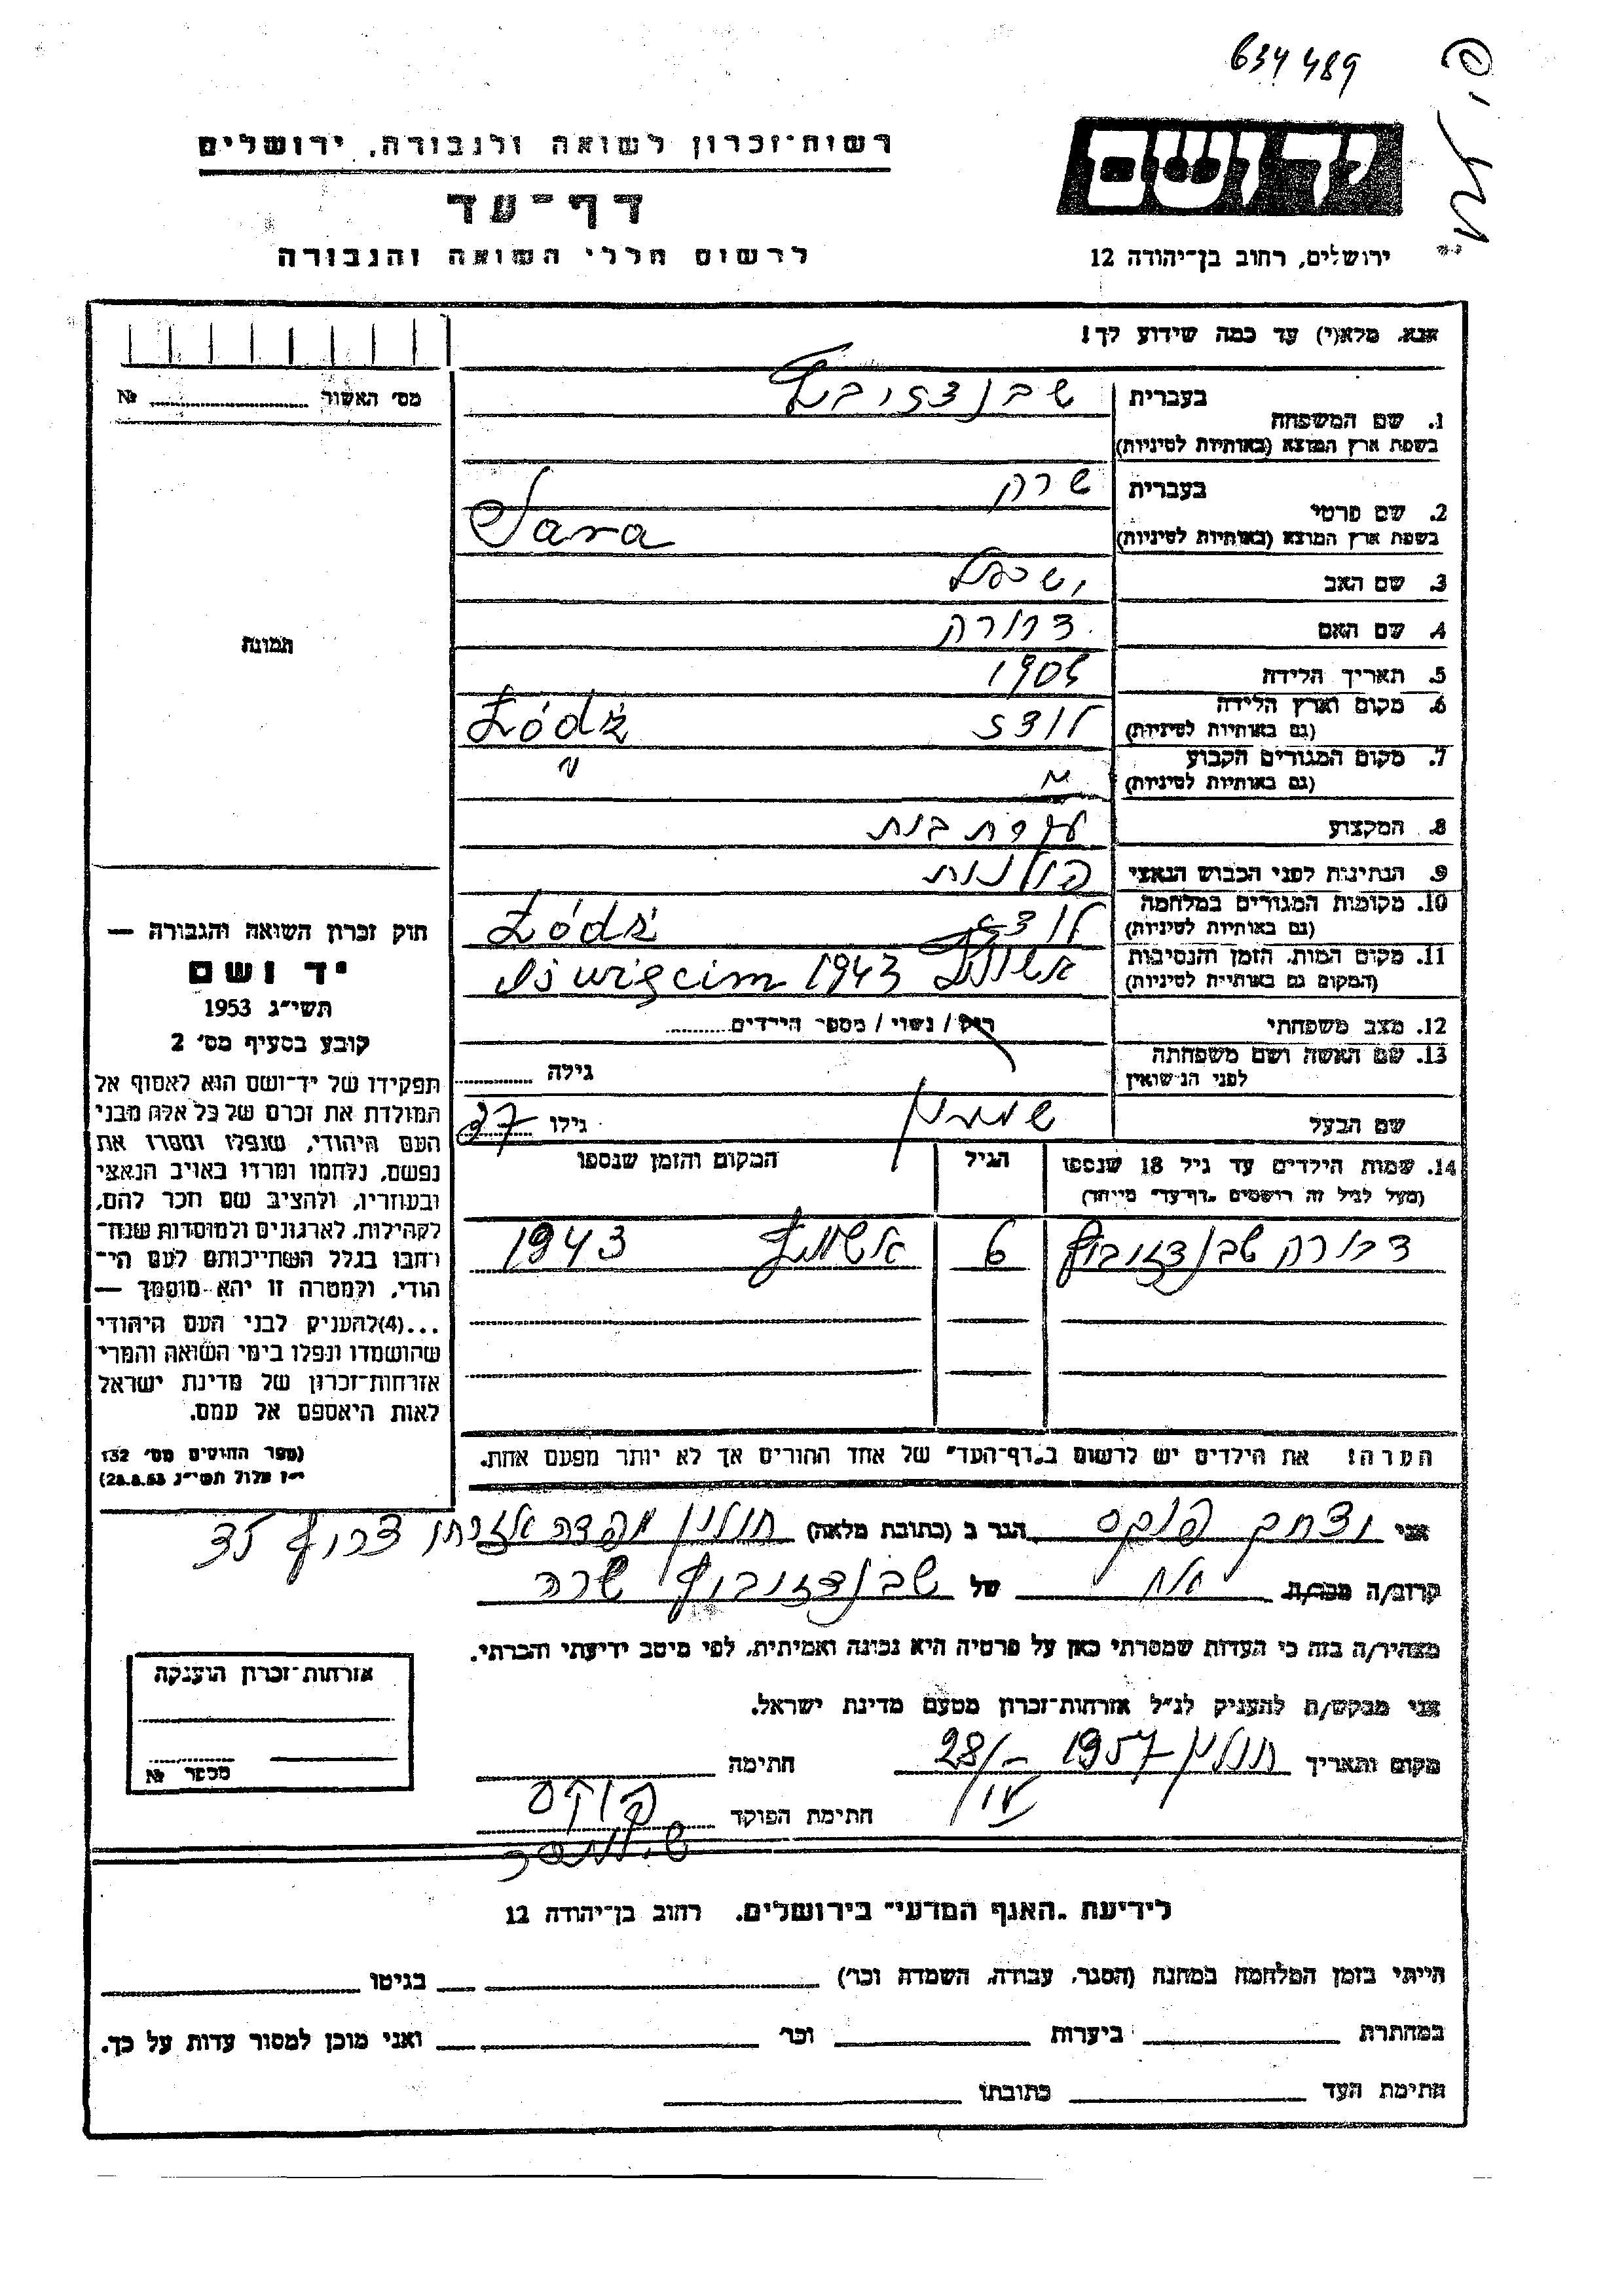 634489
רשות־זכרון לשואה ולגבורה, ירושלים
דף־עד
לרשום חללי השואה והגבורה
יד ושם
ירושלים, רחוב בן־יהודה 12
אנא, מלא(י) עד כמה שידוע לך!
מס׳ האשור № 
1. שם המשפחה
בעברית
בשפת ארץ המוצא (באותיות לטיניות)
2. שם פרטי
בעברית שרה
בשפת ארץ המוצא (באותיות לטיניות) Sara
3. שם האב
4. שם האם
5. תאריך הלידה 1905
6. מקום וארץ הלידה
(גם באותיות לטיניות) לודז Łódź
7. מקום המגורים הקבוע
(גם באותיות לטיניות) " "
8. המקצוע עקרת בית
9. הנתינות לפני הכבוש הנאצי פולנית
10. מקומות המגורים במלחמה
(גם באותיות לטיניות) לודז Łódź
11. מקום המות, הזמן והנסיבות
(המקום גם באותיות לטיניות) אושויץ Oświęcim 1943
12. מצב משפחתי רוק / נשוי / מספר הילדים
13. שם האשה ושם משפחתה
לפני הנישואין גילה
שם הבעל גילו 37
14. שמות הילדים עד גיל 18 שנספו
(מעל לגיל זה רושמים „דף־עד״ מיוחד)
הגיל
המקום והזמן שנספו
דבורה 6 1943
הערה! את הילדים יש לרשום ב„דף־העד״ של אחד ההורים אך לא יותר מפעם אחת.
תמונה
חוק זכרון השואה והגבורה —
יד ושם
תשי״ג 1953
קובע בסעיף מס׳ 2
תפקידו של יד־ושם הוא לאסוף אל
המולדת את זכרם של כל אלה מבני
העם היהודי, שנפלו ומסרו את
נפשם, נלחמו ומרדו באויב הנאצי
ובעוזריו, ולהציב שם וזכר להם,
לקהילות, לארגונים ולמוסדות שנח־
רבו בגלל השתייכותם לעם הי־
הודי, ולמטרה זו יהא מוסמך —
...(4)להעניק לבני העם היהודי
שהושמדו ונפלו בימי השואה והמרי
אזרחות־זכרון של מדינת ישראל
לאות היאספם אל עמם.
(ספר החוקים מס׳ 132
י״ז אלול תשי״ג 28.8.53)
אני יצחק פוקס הגר ב (כתובת מלאה) חולון 35
קרוב/ה מכר/ה אח של שרה
מצהיר/ה בזה כי העדות שמסרתי כאן על פרטיה היא נכונה ואמיתית, לפי מיטב ידיעתי והכרתי.
אני מבקש/ת להעניק לנ״ל אזרחות־זכרון מטעם מדינת ישראל.
מקום ותאריך חולון 1957 28/ חתימה
חתימת הפוקד
אזרחות־זכרון הוענקה
מספר №
לידיעת „האגף המדעי״ בירושלים, רחוב בן־יהודה 12
הייתי בזמן המלחמה במחנה (הסגר, עבודה, השמדה וכו׳) בגיטו
במחתרת ביערות וכו׳ ואני מוכן למסור עדות על כך.
חתימת העד כתובתו